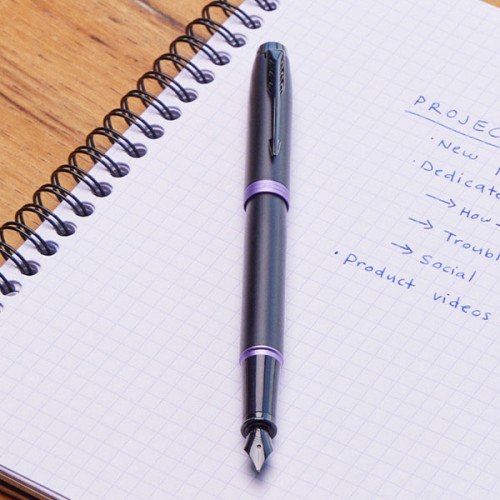 PROJEC
· New
· Dedicate
→ How
→ Troubl
→ Social
· Product videos